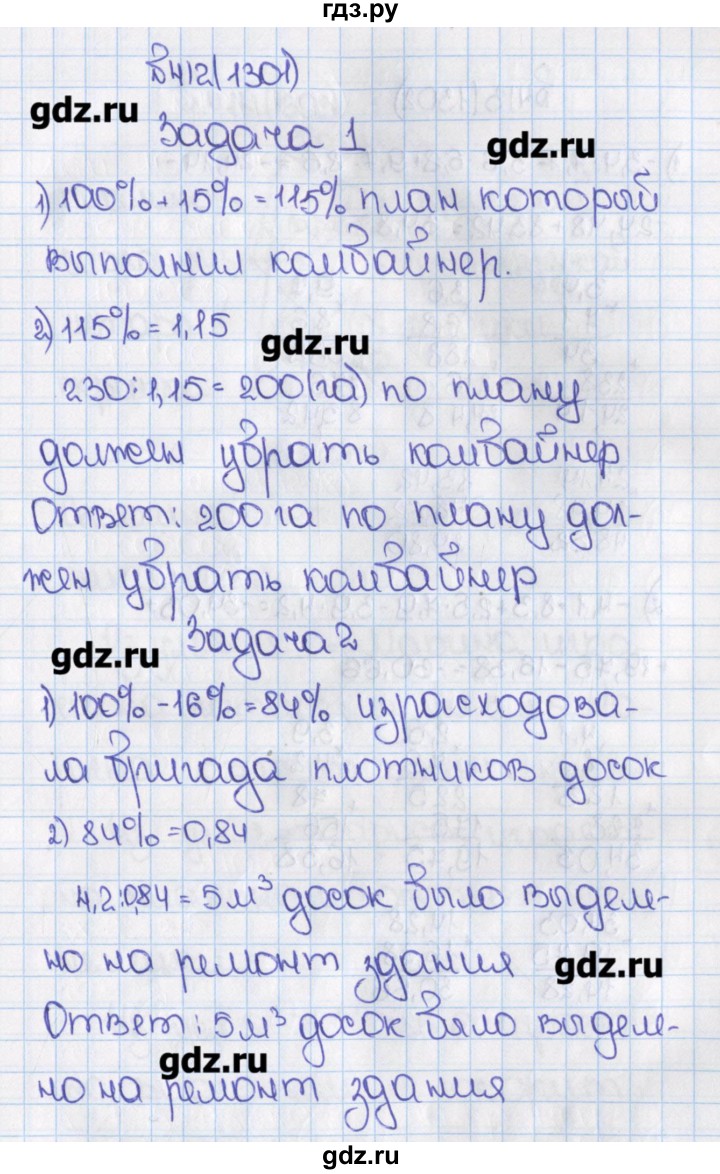 гдз.ру
№412(1301)
gdz.ru
Задача 1
gdz.ru
1) 100%+15%=115% план который
выполнил комбайнер.
2) 115%=1,15
gdz.ru
230:1,15=200(га) по плану
должен убрать комбайнер
Ответ: 200 га по плану дол-
жен убрать комбайнер
Задача 2
gdz.ru
1) 100%-16%=84% израсходова-
ла бригада плотников досок
2) 84%=0,84
4,2:0,84=5м³ досок было выделе-
но на ремонт здания
gdz.ru
Ответ: 5м³ досок было выделе-
gdz.ru
но на ремонт здания
гдз.ру